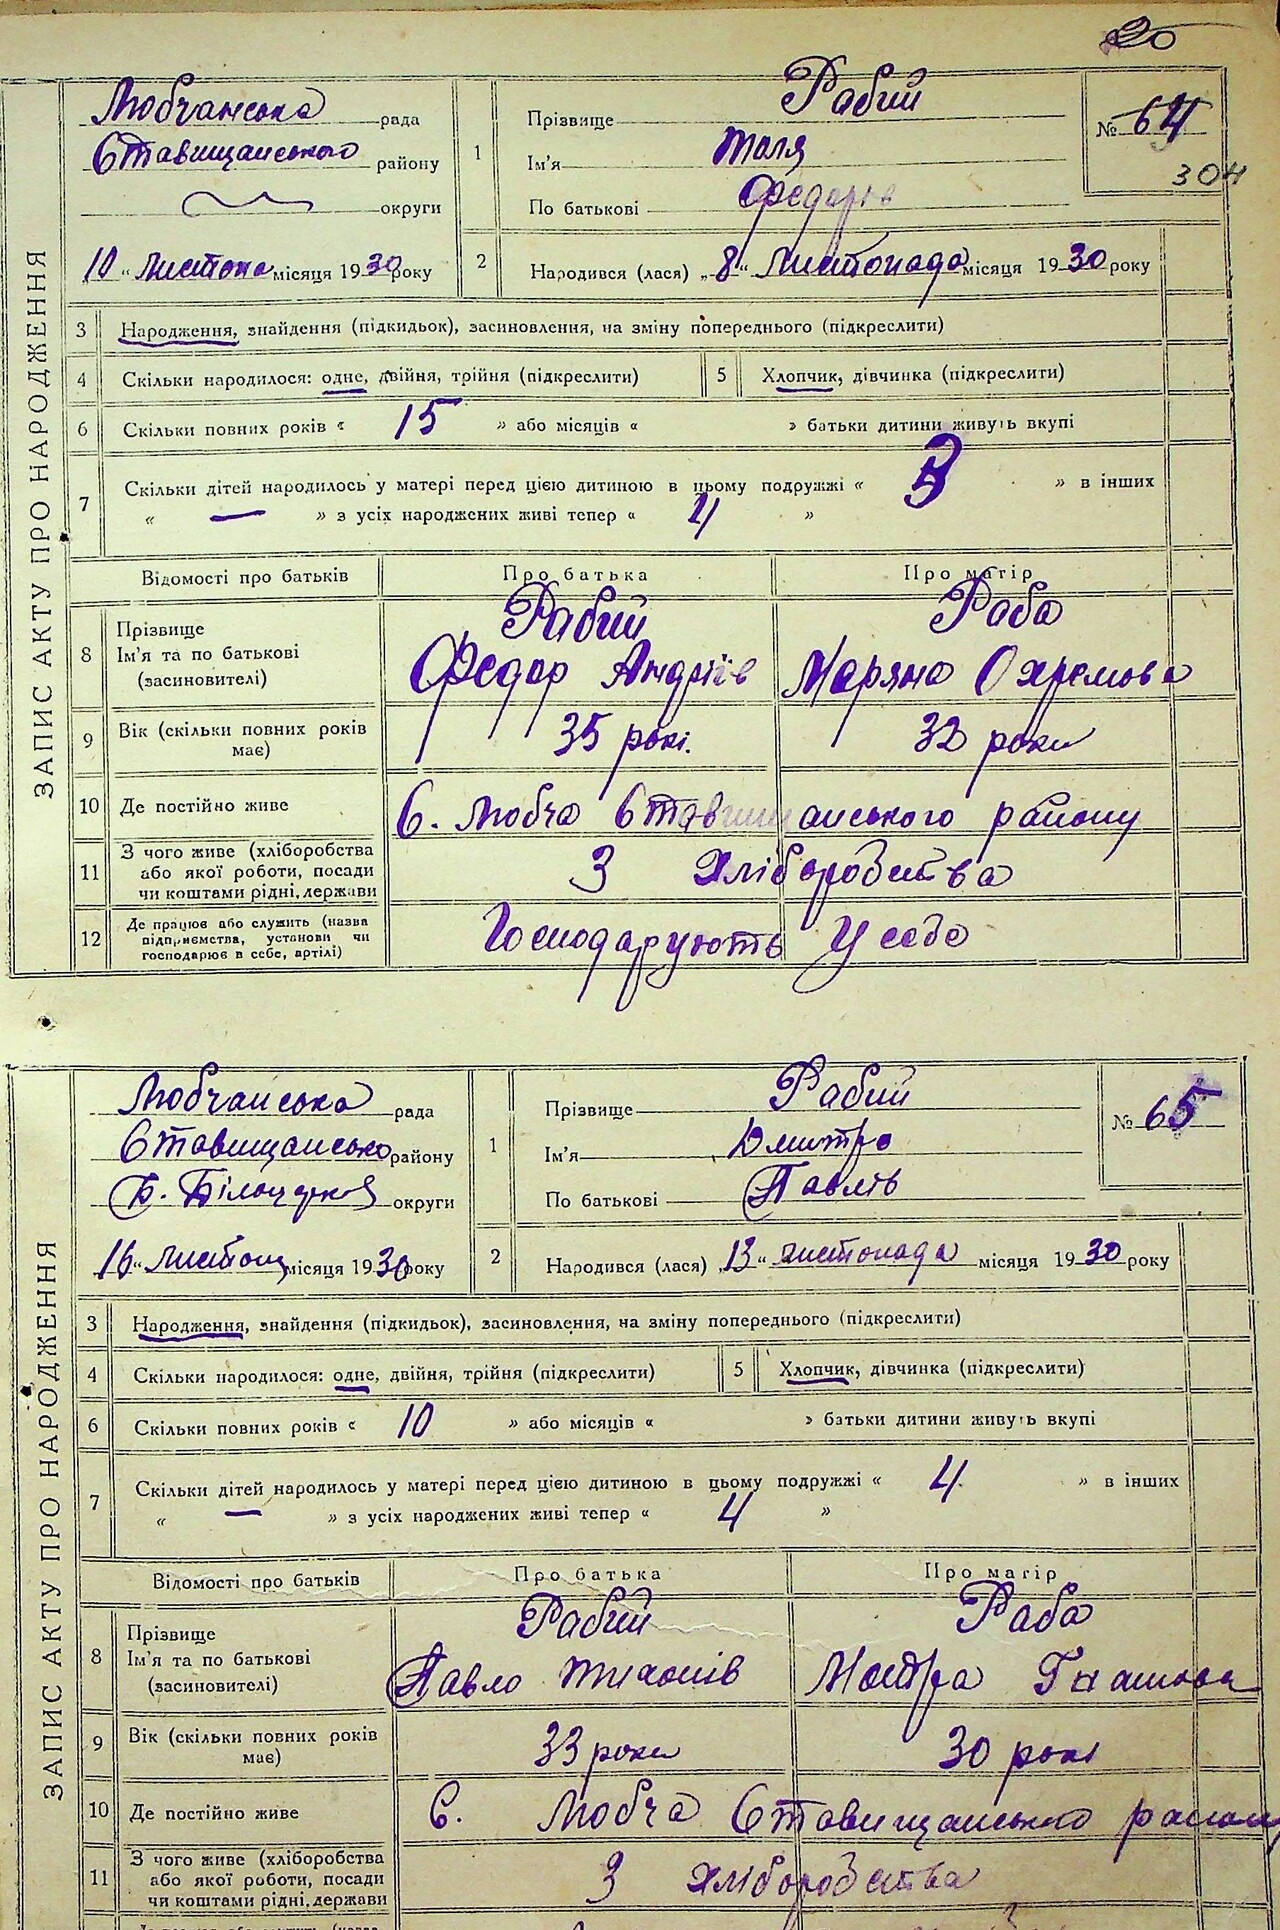 20
ЗАПИС АКТУ ПРО НАРОДЖЕННЯ
Любчанська рада
Ставищанського району
округи
10 " Листопа місяця 1930 року
1
Прізвище Рабий
Ім'я Толя
По батькові Федорів
№ 64
304
2
Народився (лася) „ 8 " Листопада місяця 1930 року
3 Народження, знайдення (підкидьок), засиновлення, на зміну попереднього (підкреслити)
4 Скільки народилося: одне, двійня, трійня (підкреслити)
5 Хлопчик, дівчинка (підкреслити)
6 Скільки повних років « 15 » або місяців « » батьки дитини живуть вкупі
7 Скільки дітей народилось у матері перед цією дитиною в цьому подружжі « » в інших
« — » з усіх народжених живі тепер « 4 »
Відомості про батьків Про батька Про матір
8 Прізвище Рабий Раба
Ім'я та по батькові Федор Андріїв Маряна Охремова
(засиновителі)
9 Вік (скільки повних років має) 35 рокі. 32 роки
10 Де постійно живе С. Любча Ставищанського району
11 З чого живе (хліборобства або якої роботи, посади чи коштами рідні, держави З Хліборобства
12 Де працює або служить (назва підприємства, установи чи господарює в себе, артілі) Господарують У себе
ЗАПИС АКТУ ПРО НАРОДЖЕННЯ
Любчанська рада
Ставищансько району
Б. Білоцерків округи
16 " Листопа місяця 1930 року
1
Прізвище Рабий
Ім'я Дмитро
По батькові Павлів
№ 65
2
Народився (лася) „ 13 " листопада місяця 1930 року
3 Народження, знайдення (підкидьок), засиновлення, на зміну попереднього (підкреслити)
4 Скільки народилося: одне, двійня, трійня (підкреслити)
5 Хлопчик, дівчинка (підкреслити)
6 Скільки повних років « 10 » або місяців « » батьки дитини живуть вкупі
7 Скільки дітей народилось у матері перед цією дитиною в цьому подружжі « 4 » в інших
« — » з усіх народжених живі тепер « 4 »
Відомості про батьків Про батька Про матір
8 Прізвище Рабий Раба
Ім'я та по батькові Павло Тихонів Мотра Гнатова
(засиновителі)
9 Вік (скільки повних років має) 33 роки 30 рокі
10 Де постійно живе С. Любча Ставищанського району
11 З чого живе (хліборобства або якої роботи, посади чи коштами рідні, держави З хліборобства